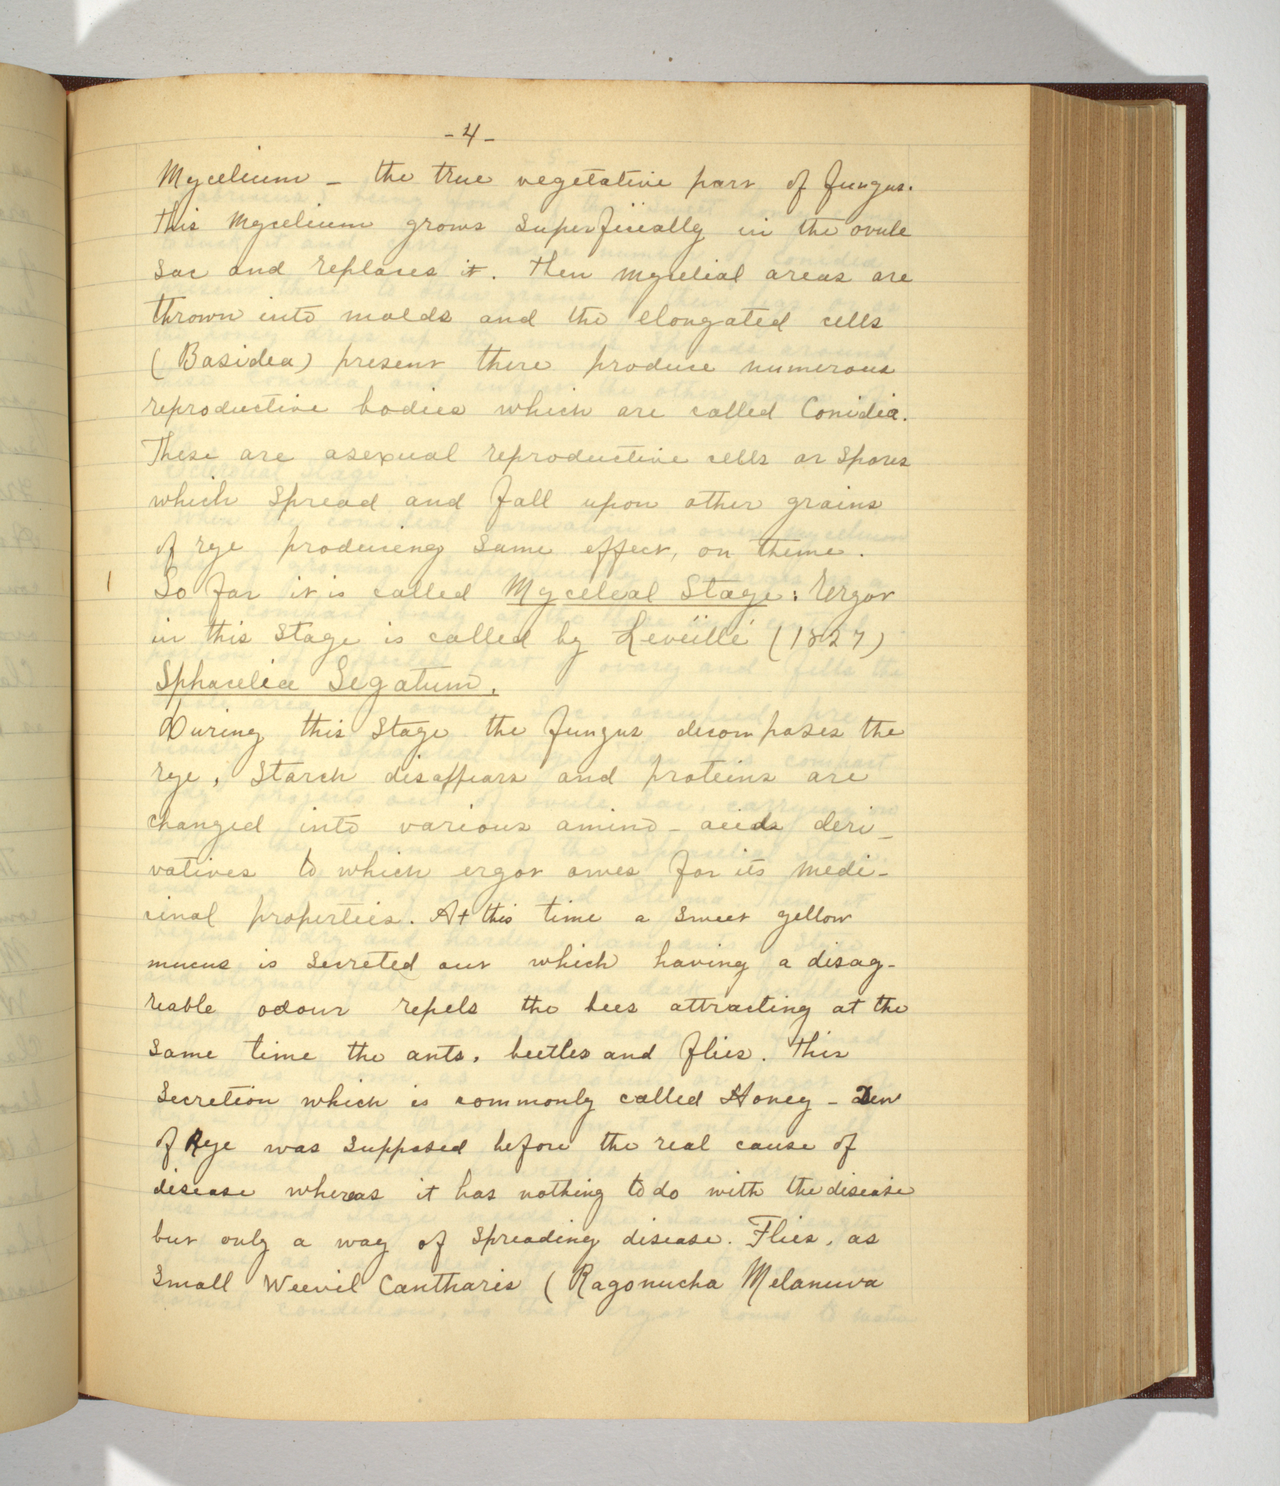 -4-
Mycelium - the true vegetative part of fungus.
this mycelium grows superficially in the ovule
sac and replaces it. then mycelial areas are
thrown into molds and the elongated cells
(Basidea) present there produce numerous
reproductive bodies which are called Conidia.
These are asexual reproductive cells or spores
which spread and fall upon other grains
of rye producing same effect, on theme.
So far it is called Myceleal Stage: Ergot
in this stage is called by Leveillé (1827)
Sphacelia Segatum.
During this stage the fungus decomposes the
rye, starch disappears and proteins are
changed into various amino-acids deri-
vatives to which ergot owes for its medi-
cinal properties. At this time a sweet yellow
mucus is secreted out which having a disag-
reable odour repels the bees attracting at the
same time the ants, beetles and flies. This
secretion which is commonly called Honey-Dew
of Rye was supposed before the real cause of
disease whereas it has nothing to do with the disease
but only a way of spreading disease. Flies, as
small Weevil Cantharis (Ragonucha Melanuva